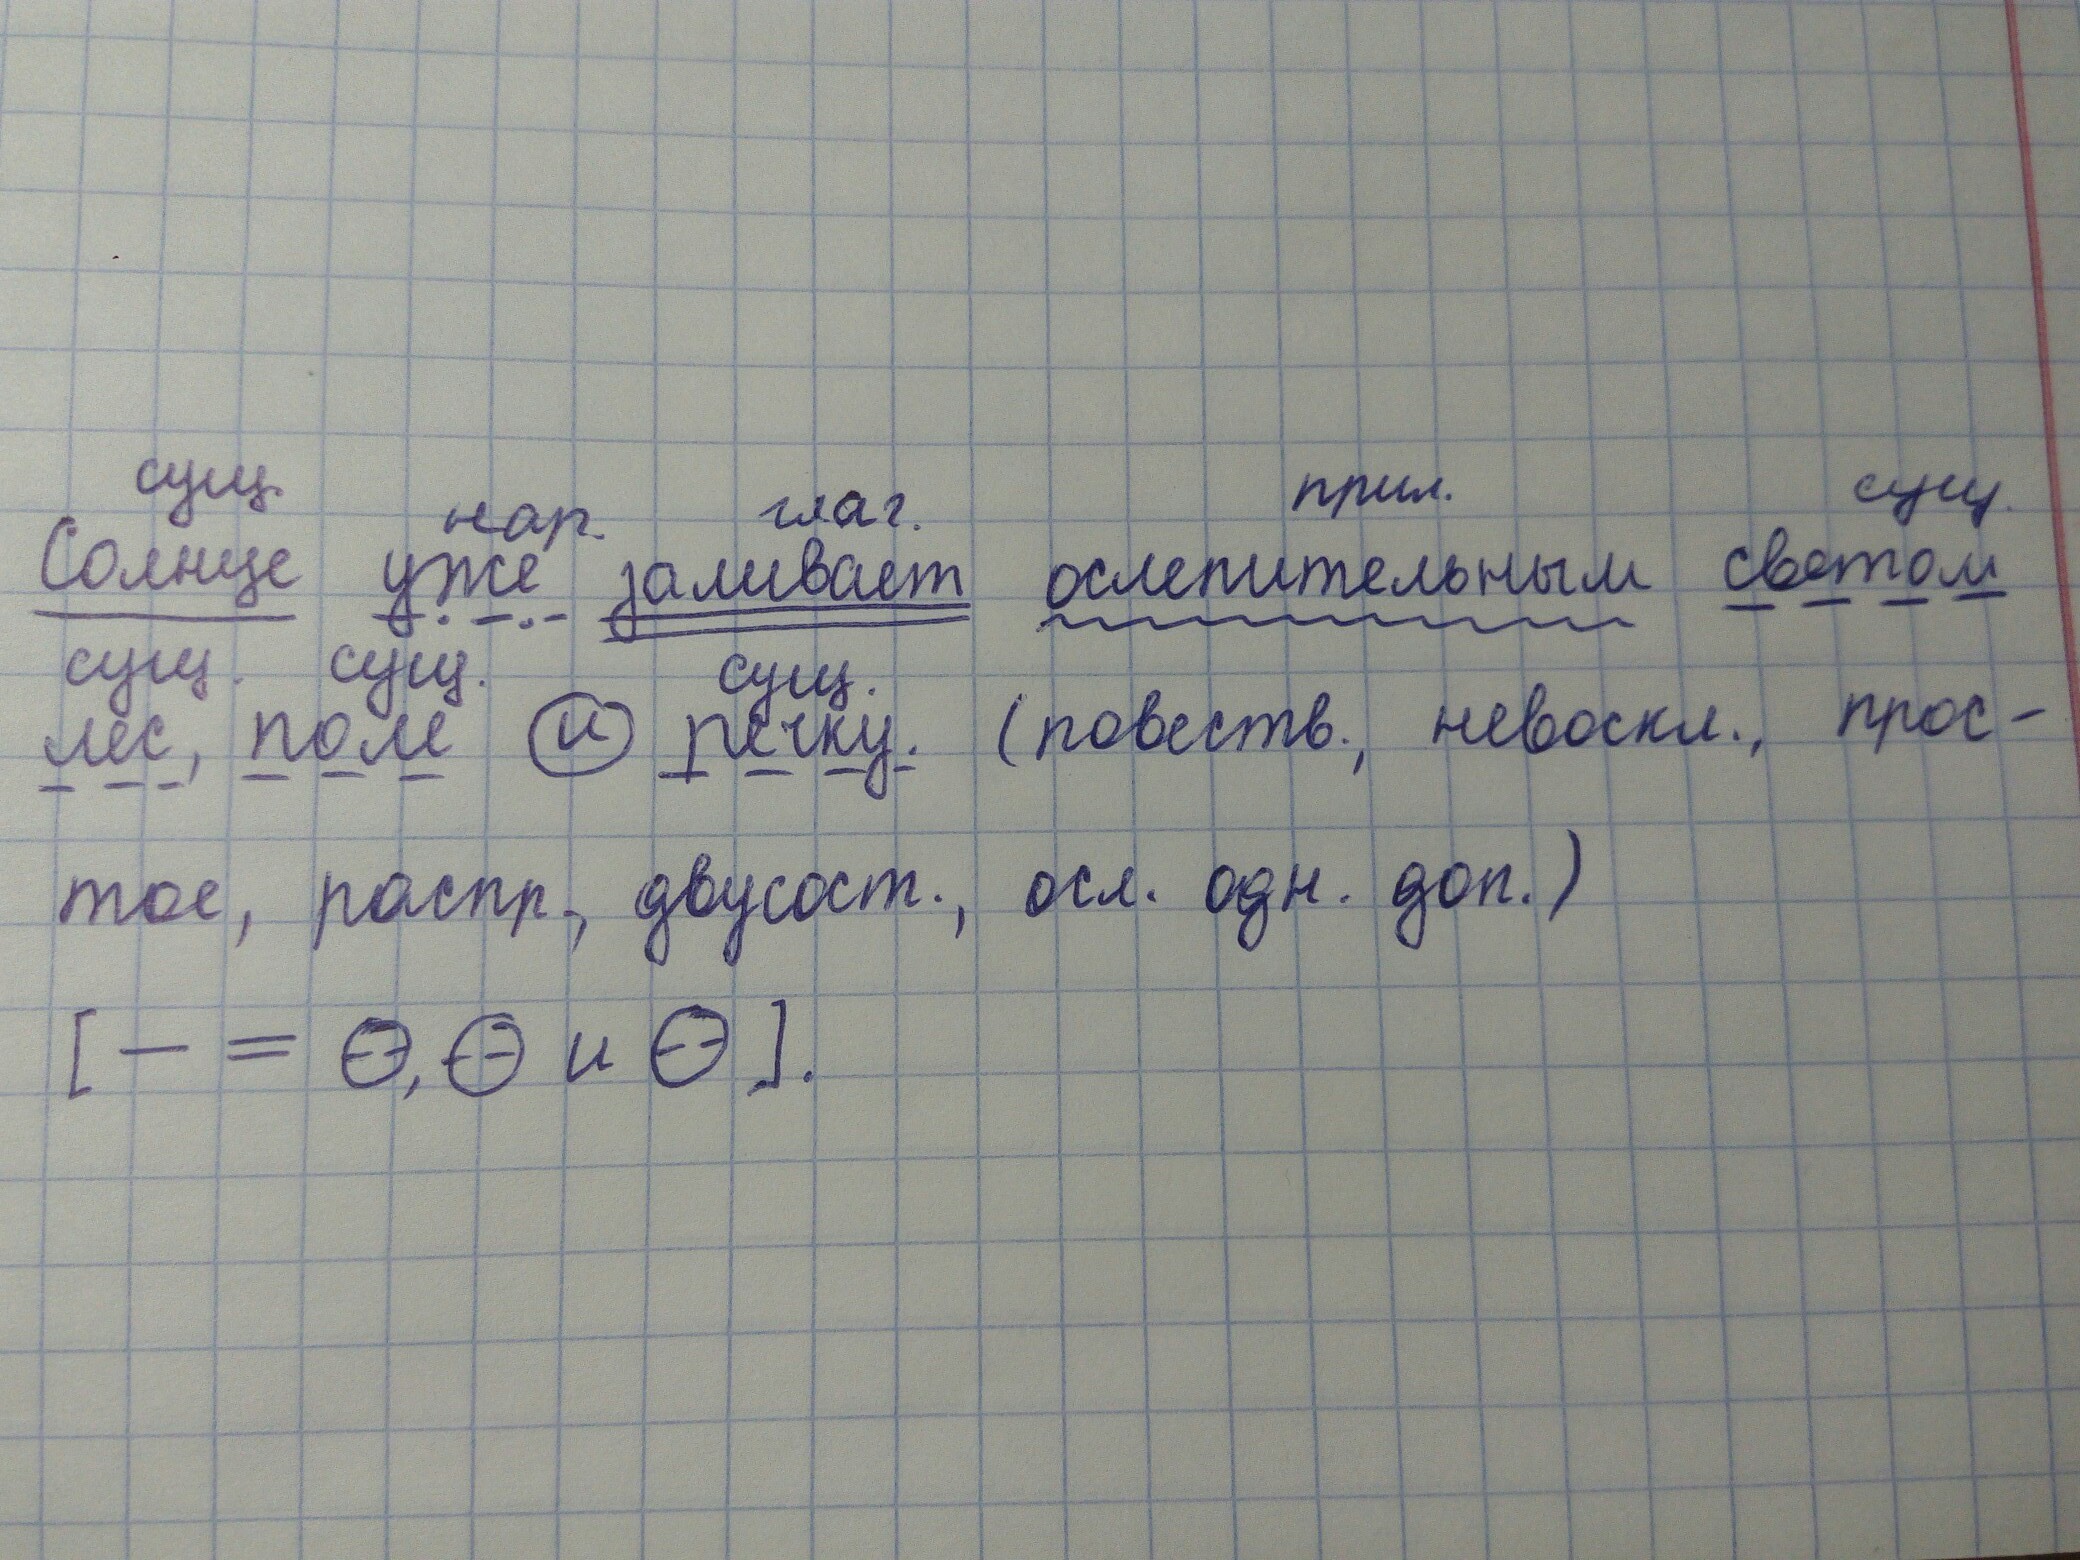 сущ. нар. глаг. прил. сущ.
Солнце уже заливает ослепительным светом
сущ. сущ. сущ.
лес, поле и речку. (повеств., невоскл., прос-
тое, распр., двусост., осл. одн. доп.)
[ — = O, O и O ].